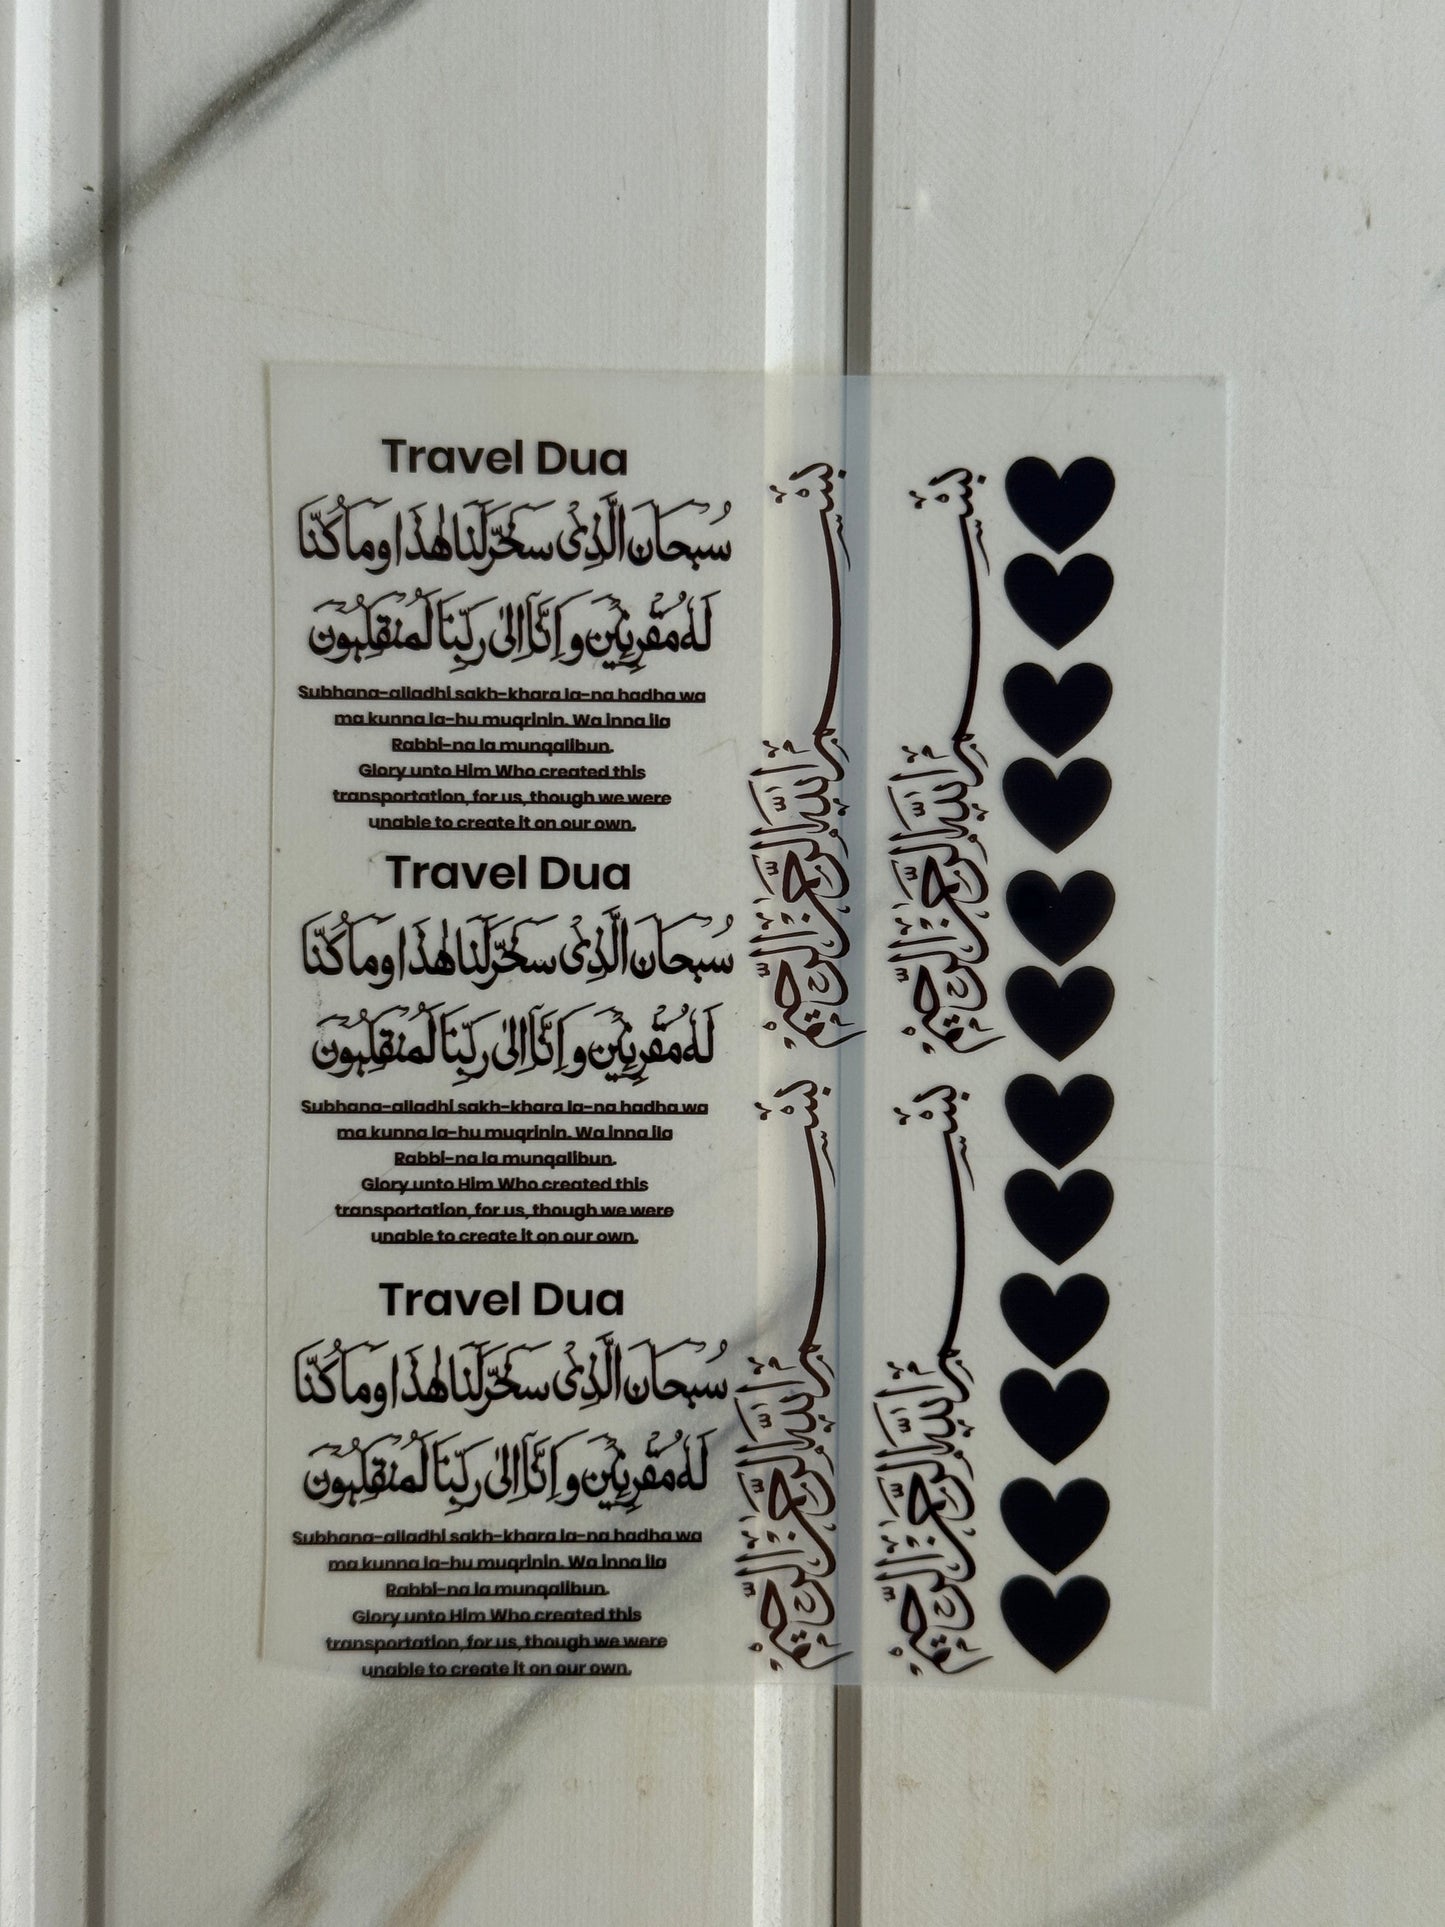 Travel Dua
سُبحَان الَّذِى سَخَّرَلَنَا هٰذَا وَمَا كُنَّا
لَهُ مُقْرِنِيْن وَاِنَّآ اِلىٰ رَبِّنَا لَمُنقَلِبُون
Subhana-alladhi sakh-khara la-na hadha wa
ma kunna la-hu muqrinin. Wa inna ila
Rabbi-na la munqalibun.
Glory unto Him Who created this
transportation, for us, though we were
unable to create it on our own.
Travel Dua
سُبحَان الَّذِى سَخَّرَلَنَا هٰذَا وَمَا كُنَّا
لَهُ مُقْرِنِيْن وَاِنَّآ اِلىٰ رَبِّنَا لَمُنقَلِبُون
Subhana-alladhi sakh-khara la-na hadha wa
ma kunna la-hu muqrinin. Wa inna ila
Rabbi-na la munqalibun.
Glory unto Him Who created this
transportation, for us, though we were
unable to create it on our own.
Travel Dua
سُبحَان الَّذِى سَخَّرَلَنَا هٰذَا وَمَا كُنَّا
لَهُ مُقْرِنِيْن وَاِنَّآ اِلىٰ رَبِّنَا لَمُنقَلِبُون
Subhana-alladhi sakh-khara la-na hadha wa
ma kunna la-hu muqrinin. Wa inna ila
Rabbi-na la munqalibun.
Glory unto Him Who created this
transportation, for us, though we were
unable to create it on our own.
بِسْمِ اللَّهِ الرَّحْمَٰنِ الرَّحِيمِ
بِسْمِ اللَّهِ الرَّحْمَٰنِ الرَّحِيمِ
بِسْمِ اللَّهِ الرَّحْمَٰنِ الرَّحِيمِ
بِسْمِ اللَّهِ الرَّحْمَٰنِ الرَّحِيمِ